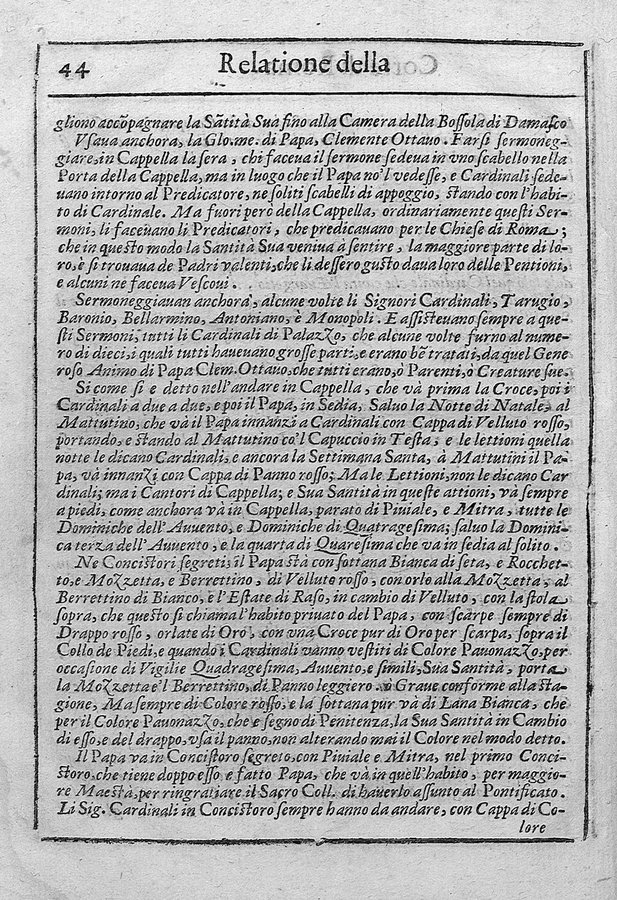 44 Relatione della
gliono accõpagnare la Sãtità Sua fino alla Camera della Bossola di Damasco
Vsaua anchora, la Glo.me. di Papa, Clemente Ottauo. Farsi sermoneg-
giare, in Cappella la sera, chi faceua il sermone sedeua in vno scabello nella
Porta della Cappella, ma in luogo che il Papa no'l vedesse, e Cardinali sede-
uano intorno al Predicatore, ne soliti scabelli di appoggio, stando con l'habi-
to di Cardinale. Ma fuori però della Cappella, ordinariamente questi Ser-
moni, li faceuano li Predicatori, che predicauano per le Chiese di Roma;
che in questo modo la Santità Sua veniua à sentire, la maggiore parte di lo-
ro, è si trouaua de Padri valenti, che li dessero gusto daua loro delle Pentioni,
e alcuni ne faceua Vescoui.
Sermoneggiauan anchora, alcune volte li Signori Cardinali, Tarugio,
Baronio, Bellarmino, Antoniano, è Monopoli. E assisteuano sempre a que-
sti Sermoni, tutti li Cardinali di Palazzo, che alcune volte furno al nume-
ro di dieci, i quali tutti haueuano grosse parti, e erano bẽ tratati, da quel Gene
roso Animo di Papa Clem. Ottauo, che tutti erano, ò Parenti, ò Creature sue.
Si come si e detto nell'andare in Cappella, che và prima la Croce, poi i
Cardinali a due a due, e poi il Papa, in Sedia, Saluo la Notte di Natale, al
Mattutino, che và il Papa innanzi a Cardinali con Cappa di Velluto rosso,
portando, e stando al Mattutino co'l Capuccio in Testa; e le lettioni quella
notte le dicano Cardinali, e ancora la Settimana Santa, à Mattutini il Pa-
pa, và innanzi con Cappa di Panno rosso; Ma le Lettioni, non le dicano Car
dinali; ma i Cantori di Cappella; e Sua Santità in queste attioni, và sempre
a piedi, come anchora và in Cappella, parato di Piuiale, e Mitra, tutte le
Dominiche dell'Auuento, e Dominiche di Quatragesima; saluo la Domini-
ca terza dell'Auuento, e la quarta di Quaresima che va in sedia al solito.
Ne Concistori segreti, il Papa stà con sottana Bianca di seta, e Rocchet-
to, e Mozzetta, e Berrettino, di Velluto rosso, con orlo alla Mozzetta, al
Berrettino di Bianco, e l'Estate di Raso, in cambio di Velluto, con la stola
sopra, che questo si chiama l'habito priuato del Papa, con scarpe sempre di
Drappo rosso, orlate di Oro, con vna Croce pur di Oro per scarpa, sopra il
Collo de Piedi, e quando i Cardinali vanno vestiti di Colore Pauonazzo, per
occasione di Vigilie Quadragesima, Auuento, e simili, Sua Santità, porta
la Mozzetta e'l Berrettino, di Panno leggiero. ò Graue conforme alla sta-
gione, Ma sempre di Colore rosso, e la sottana pur và di Lana Bianca, che
per il Colore Pauonazzo, che e segno di Penitenza, la Sua Santità in Cambio
di esso, e del drappo, vsa il panno, non alterando mai il Colore nel modo detto.
Il Papa va in Concistoro segreto, con Piuiale e Mitra, nel primo Conci-
storo, che tiene doppo esso e fatto Papa, che và in quell'habito, per maggio-
re Maestà, per ringratiare il Sacro Coll. di hauerlo assunto al Pontificato.
Li Sig. Cardinali in Concistoro sempre hanno da andare, con Cappa di Co-
lore